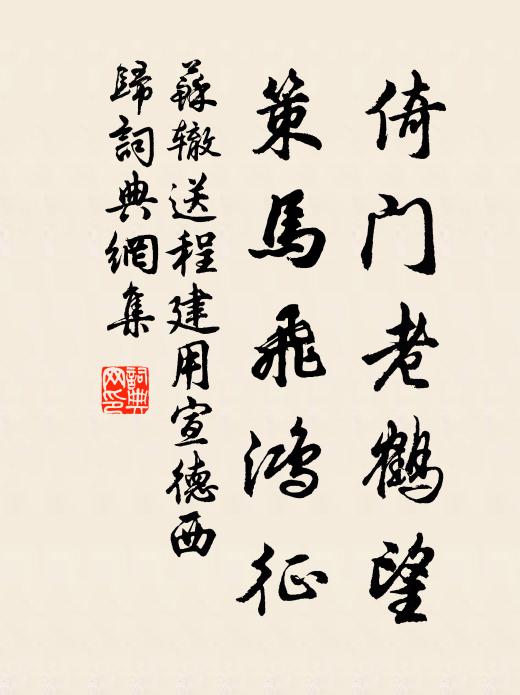 倚门老鹤望
策馬飛鸿征
蘇辙送程建用宣德西
歸詞典網集
詞典网印